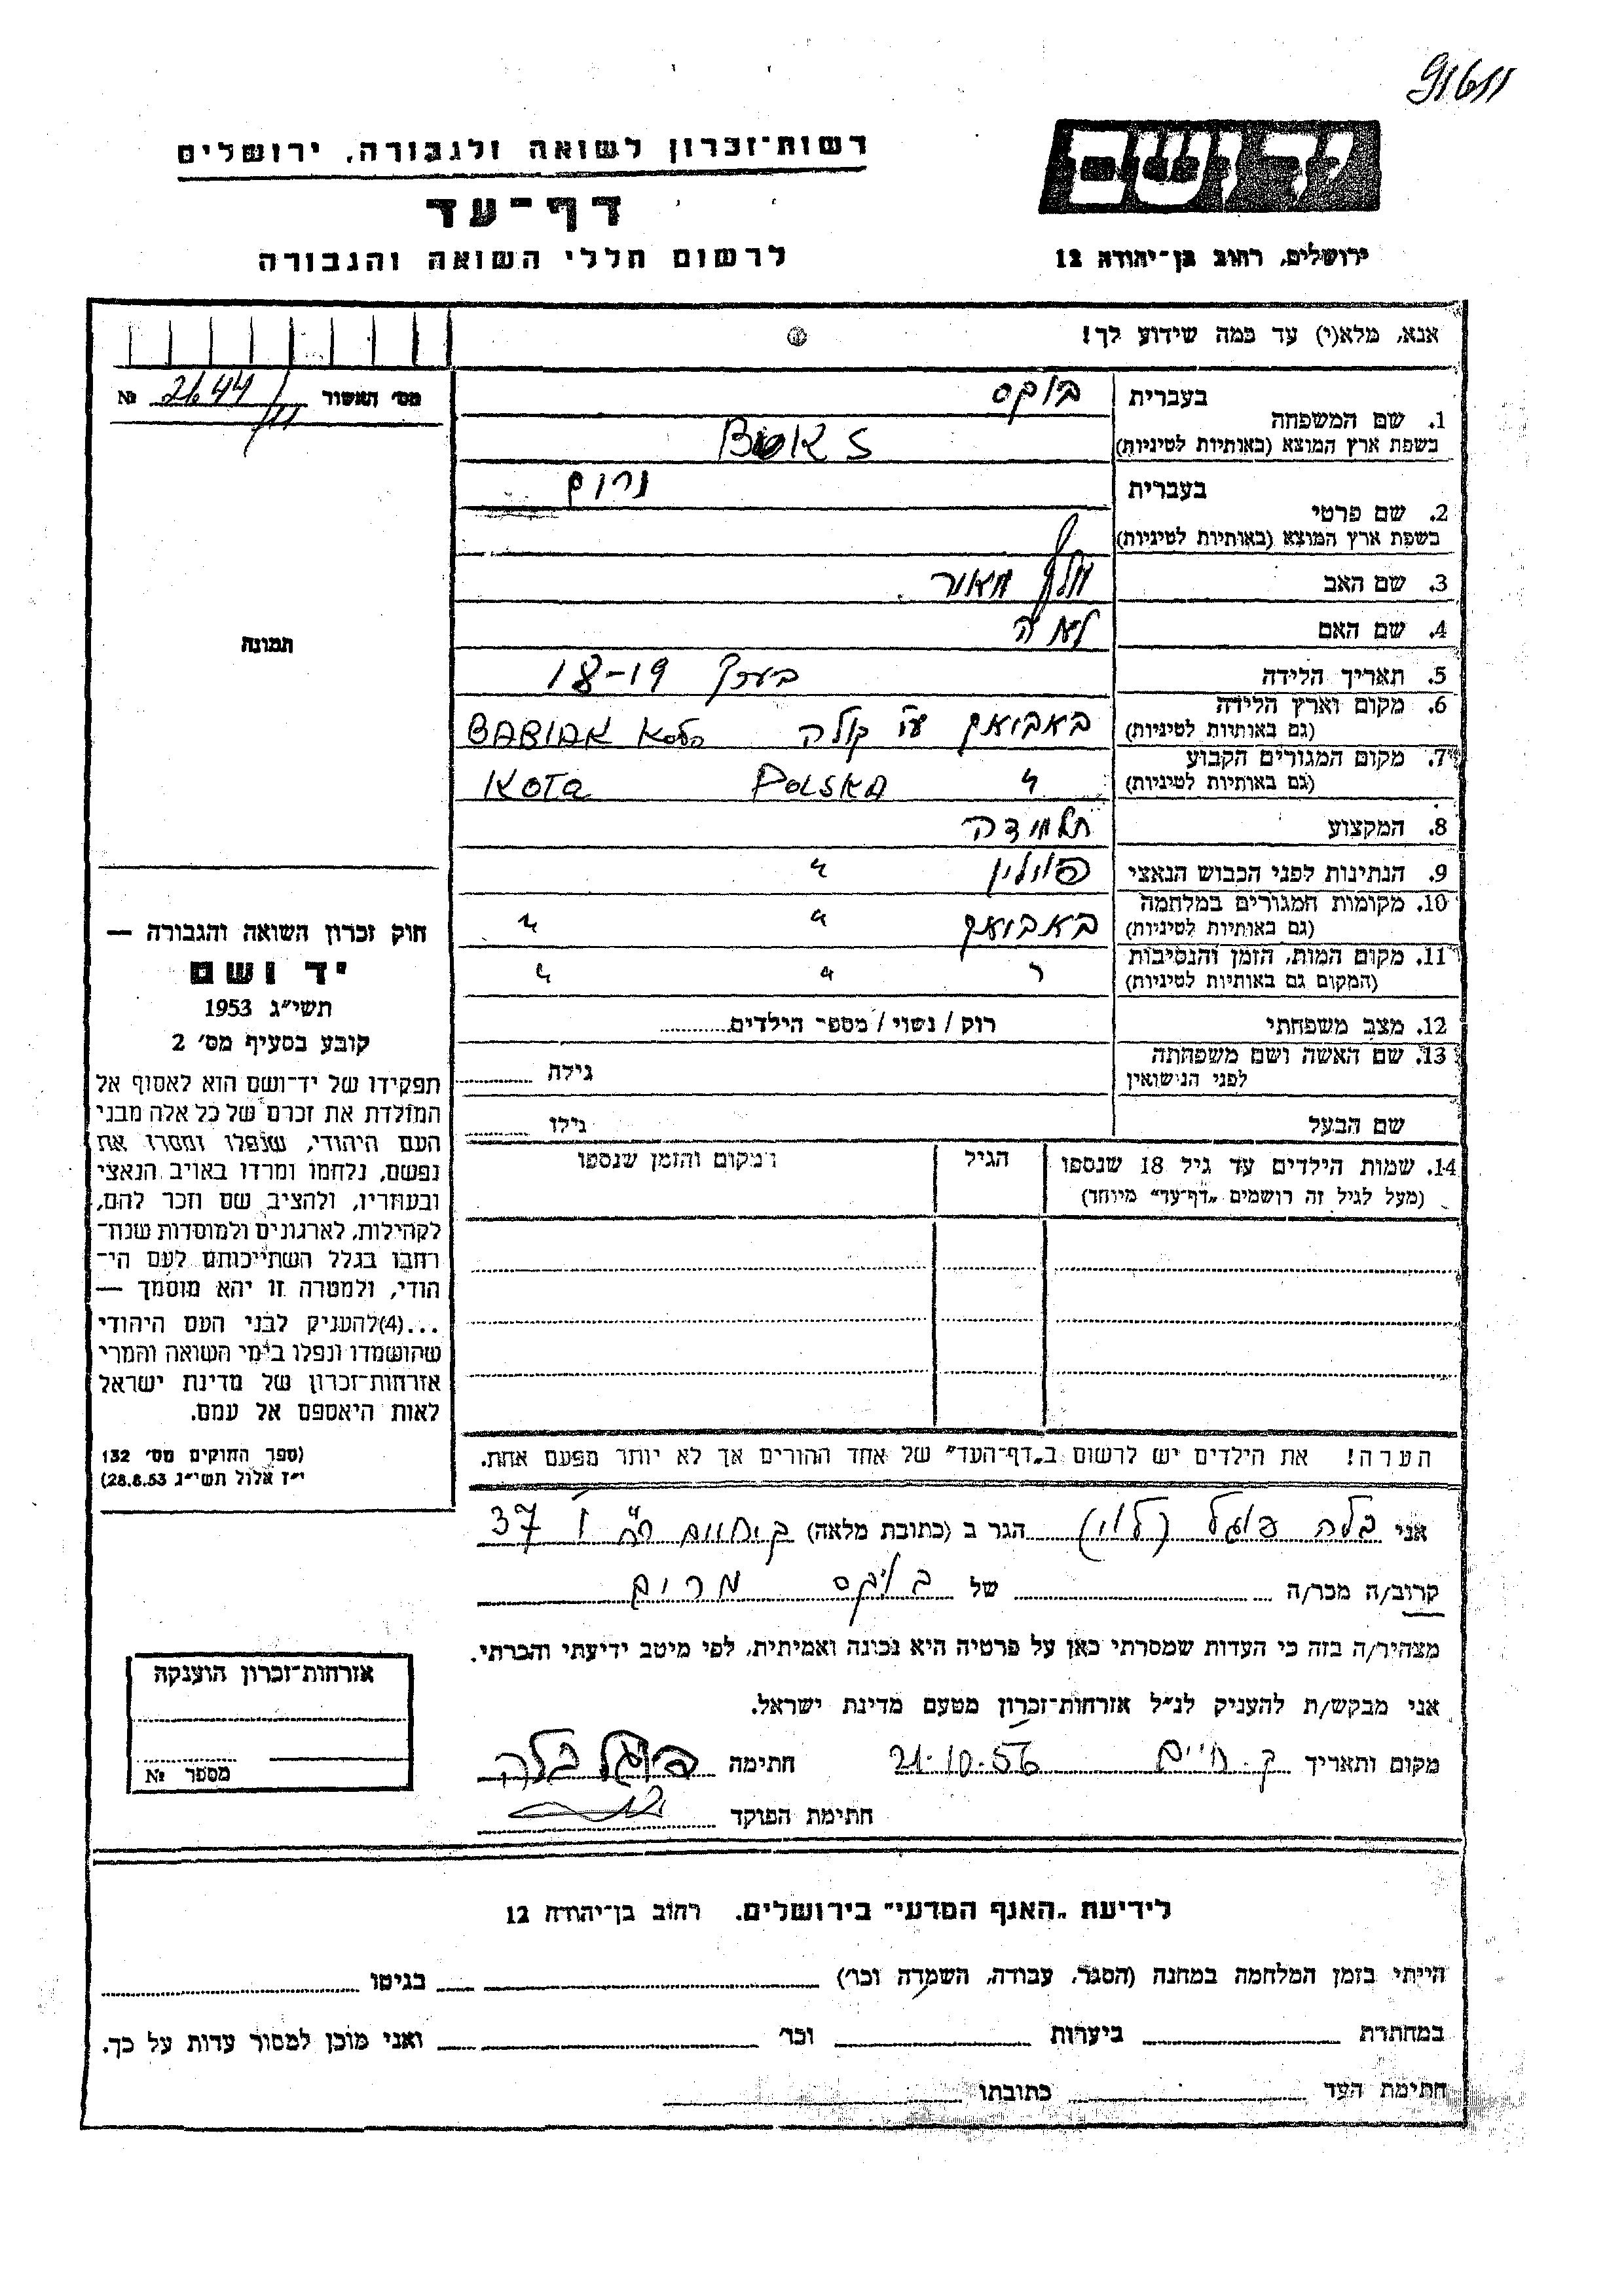 91611
יד ושם
רשות־זכרון לשואה ולגבורה, ירושלים
דף־עד
לרשום חללי השואה והגבורה
ירושלים, רחוב בן־יהודה 12
אנא, מלא(י) עד כמה שידוע לך!
מס׳ האשור № 2644/111
1. שם המשפחה בעברית בוקס
בשפת ארץ המוצא (באותיות לטיניות) BUKS
2. שם פרטי בעברית מרים
בשפת ארץ המוצא (באותיות לטיניות)
3. שם האב מאור
4. שם האם לאה
5. תאריך הלידה בערך 18-19
6. מקום וארץ הלידה (גם באותיות לטיניות) באביאק ע״י קולה BABIAK
7. מקום המגורים הקבוע (גם באותיות לטיניות) " POLSKA KOTA
8. המקצוע תלמידה
9. הנתינות לפני הכבוש הנאצי פולין "
10. מקומות המגורים במלחמה (גם באותיות לטיניות) באביאק " "
11. מקום המות, הזמן והנסיבות (המקום גם באותיות לטיניות) " "
12. מצב משפחתי רוק / נשוי / מספר הילדים
13. שם האשה ושם משפחתה לפני הנישואין גילה
שם הבעל גילו
14. שמות הילדים עד גיל 18 שנספו (מעל לגיל זה רושמים „דף־עד״ מיוחד) הגיל המקום והזמן שנספו
תמונה
חוק זכרון השואה והגבורה —
יד ושם
תשי״ג 1953
קובע בסעיף מס׳ 2
תפקידו של יד־ושם הוא לאסוף אל
המולדת את זכרם של כל אלה מבני
העם היהודי, שנפלו ומסרו את
נפשם, נלחמו ומרדו באויב הנאצי
ובעוזריו, ולהציב שם וזכר להם,
לקהילות, לארגונים ולמוסדות שנח־
רבו בגלל השתייכותם לעם הי־
הודי, ולמטרה זו יהא מוסמך —
...(4)להעניק לבני העם היהודי
שהושמדו ונפלו בימי השואה והמרי
אזרחות־זכרון של מדינת ישראל
לאות היאספם אל עמם.
(ספר החוקים מס׳ 132
י״ז אלול תשי״ג 28.8.53)
הערה! את הילדים יש לרשום ב„דף־העד״ של אחד ההורים אך לא יותר מפעם אחת.
אני בלה פוגל (לוי) הגר ב (כתובת מלאה) 37
קרוב/ה מכר/ה של בוקס מרים
מצהיר/ה בזה כי העדות שמסרתי כאן על פרטיה היא נכונה ואמיתית, לפי מיטב ידיעתי והכרתי.
אני מבקש/ת להעניק לנ״ל אזרחות־זכרון מטעם מדינת ישראל.
מקום ותאריך ק. חיים 21.10.56 חתימה פוגל בלה
חתימת הפוקד
אזרחות־זכרון הוענקה
מספר №
לידיעת „האגף המדעי״ בירושלים, רחוב בן־יהודה 12
הייתי בזמן המלחמה במחנה (הסגר, עבודה, השמדה וכו׳) בגיטו
במחתרת ביערות וכו׳ ואני מוכן למסור עדות על כך.
חתימת העד כתובתו